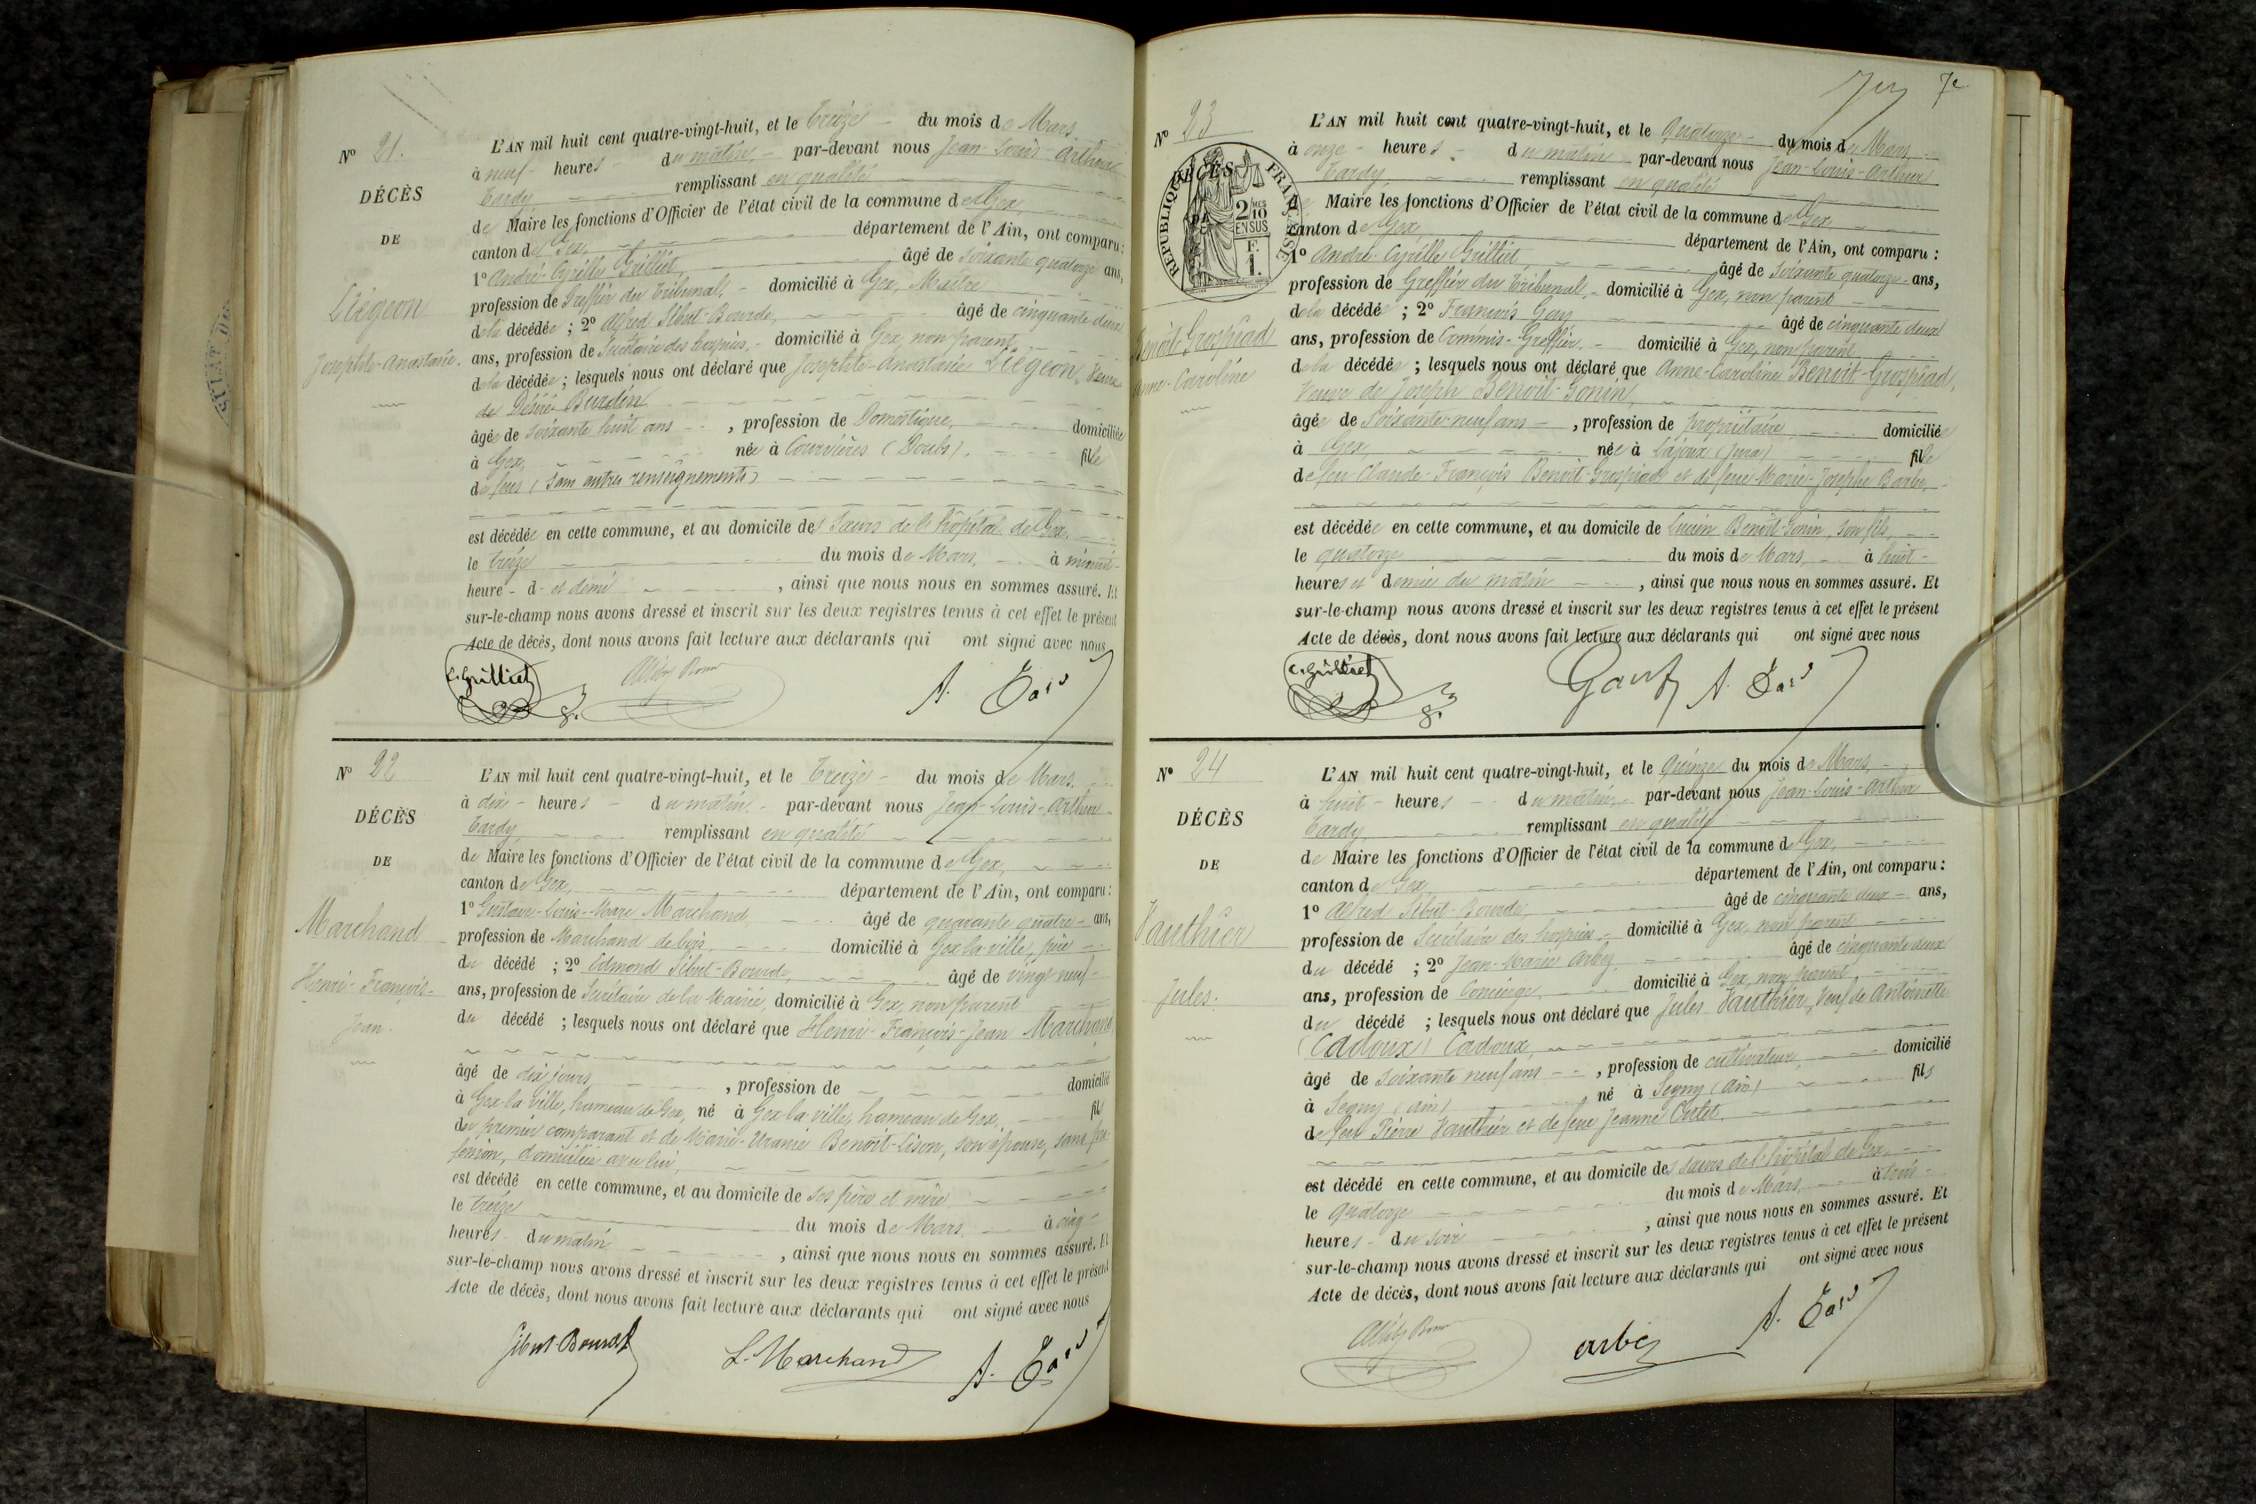 Nº 21.
DÉCÈS
DE
Liégeon
Josephte-Anastasie.
L'AN mil huit cent quatre-vingt-huit, et le Treize du mois de Mars
à neuf heures du matin, par-devant nous Jean-Louis-Arthur
Tardy, remplissant en qualité
de Maire les fonctions d'Officier de l'état civil de la commune de Gex,
canton de Gex, département de l'Ain, ont comparu :
1º André-Cyrille Grilliet, âgé de soixante quatorze ans,
profession de Greffier du Tribunal, domicilié à Gex, Maître
de la décédée ; 2º Alfred Sibut-Bourde, âgé de cinquante deux
ans, profession de Secrétaire des hospices, domicilié à Gex, non parent
de la décédée ; lesquels nous ont déclaré que Josephte-Anastasie Liégeon, Veuve
de Désiré Burdin
âgée de soixante huit ans , profession de Domestique, domiciliée
à Gex, née à Courvières (Doubs). fille
de feus (sans autres renseignements)
est décédée en cette commune, et au domicile des Sœurs de l'hôpital de Gex.
le treize du mois de Mars, à minuit
heure d et demi , ainsi que nous nous en sommes assuré. Et
sur-le-champ nous avons dressé et inscrit sur les deux registres tenus à cet effet le présent
Acte de décès, dont nous avons fait lecture aux déclarants qui ont signé avec nous
C. Grilliet A. Tardy
Nº 22
DÉCÈS
DE
Marchand
Henri-François-
Jean.
L'AN mil huit cent quatre-vingt-huit, et le Treize du mois de Mars.
à dix heures du matin par-devant nous Jean-Louis-Arthur
Tardy, remplissant en qualité
de Maire les fonctions d'Officier de l'état civil de la commune de Gex,
canton de Gex, département de l'Ain, ont comparu :
1º Gustave-Louis-Marc Marchand âgé de quarante quatre ans,
profession de Marchand de bois, domicilié à Gex-la-ville, père
du décédé ; 2º Edmond Sibut-Bourde, âgé de vingt neuf
ans, profession de Secrétaire de la Mairie, domicilié à Gex, non parent
du décédé ; lesquels nous ont déclaré que Henri-François-Jean Marchand
âgé de dix jours , profession de domicilié
à Gex-la-ville, hameau de Gex, né à Gex-la-ville, hameau de Gex, fils
du premier comparant et de Marie-Uranie Benoit-Lison, son épouse, sans pro-
fession, domiciliée avec lui,
est décédé en cette commune, et au domicile de ses père et mère
le treize du mois de Mars, à cinq
heures du matin , ainsi que nous nous en sommes assuré. Et
sur-le-champ nous avons dressé et inscrit sur les deux registres tenus à cet effet le présent
Acte de décès, dont nous avons fait lecture aux déclarants qui ont signé avec nous
Sibut-Bourde L. Marchand A. Tardy
Nº 23
DÉCÈS
DE
RÉPUBLIQUE FRANÇAISE
2/10 EN SUS
F. 1.
Benoit-Grospiad
Anne-Caroline
L'AN mil huit cent quatre-vingt-huit, et le Quatorze du mois de Mars,
à onze heures du matin par-devant nous Jean-Louis-Arthur
Tardy, remplissant en qualité
de Maire les fonctions d'Officier de l'état civil de la commune de Gex
canton de Gex département de l'Ain, ont comparu :
1º André-Cyrille Grilliet, âgé de soixante quatorze ans,
profession de Greffier du Tribunal, domicilié à Gex, non parent
de la décédée ; 2º François Gay âgé de cinquante deux
ans, profession de Commis-Greffier, domicilié à Gex, non parent,
de la décédée ; lesquels nous ont déclaré que Anne-Caroline Benoit-Grospiad,
Veuve de Joseph Benoit-Gonin,
âgée de soixante-neuf ans , profession de propriétaire, domiciliée
à Gex, née à Lajoux (Jura) fille
de feu Claude-François Benoit-Grospiad et de feue Marie-Josephe Barbe,
est décédée en cette commune, et au domicile de Lucien Benoit-Gonin, son fils,
le quatorze du mois de Mars, à huit
heures et demie du matin , ainsi que nous nous en sommes assuré. Et
sur-le-champ nous avons dressé et inscrit sur les deux registres tenus à cet effet le présent
Acte de décès, dont nous avons fait lecture aux déclarants qui ont signé avec nous
C. Grilliet Gay A. Tardy
Nº 24
DÉCÈS
DE
Vauthier
Jules.
L'AN mil huit cent quatre-vingt-huit, et le Quinze du mois de Mars
à huit heures du matin, par-devant nous Jean-Louis-Arthur
Tardy remplissant en qualité
de Maire les fonctions d'Officier de l'état civil de la commune de Gex,
canton de Gex département de l'Ain, ont comparu :
1º Alfred Sibut-Bourde, âgé de cinquante deux ans,
profession de Secrétaire des hospices, domicilié à Gex, non parent
du décédé ; 2º Jean-Marie Arbez, âgé de cinquante deux
ans, profession de Concierge, domicilié à Gex, non parent,
du décédé ; lesquels nous ont déclaré que Jules Vauthier, Veuf de Antoinette
(Cadoux) Cadoux,
âgé de soixante neuf ans , profession de cultivateur, domicilié
à Segny (Ain) né à Segny (Ain) fils
de feu Pierre Vauthier et de feue Jeanne
est décédé en cette commune, et au domicile des sœurs de l'hôpital de Gex
le quatorze du mois de Mars, à trois
heures du soir , ainsi que nous nous en sommes assuré. Et
sur-le-champ nous avons dressé et inscrit sur les deux registres tenus à cet effet le présent
Acte de décès, dont nous avons fait lecture aux déclarants qui ont signé avec nous
Arbez A. Tardy